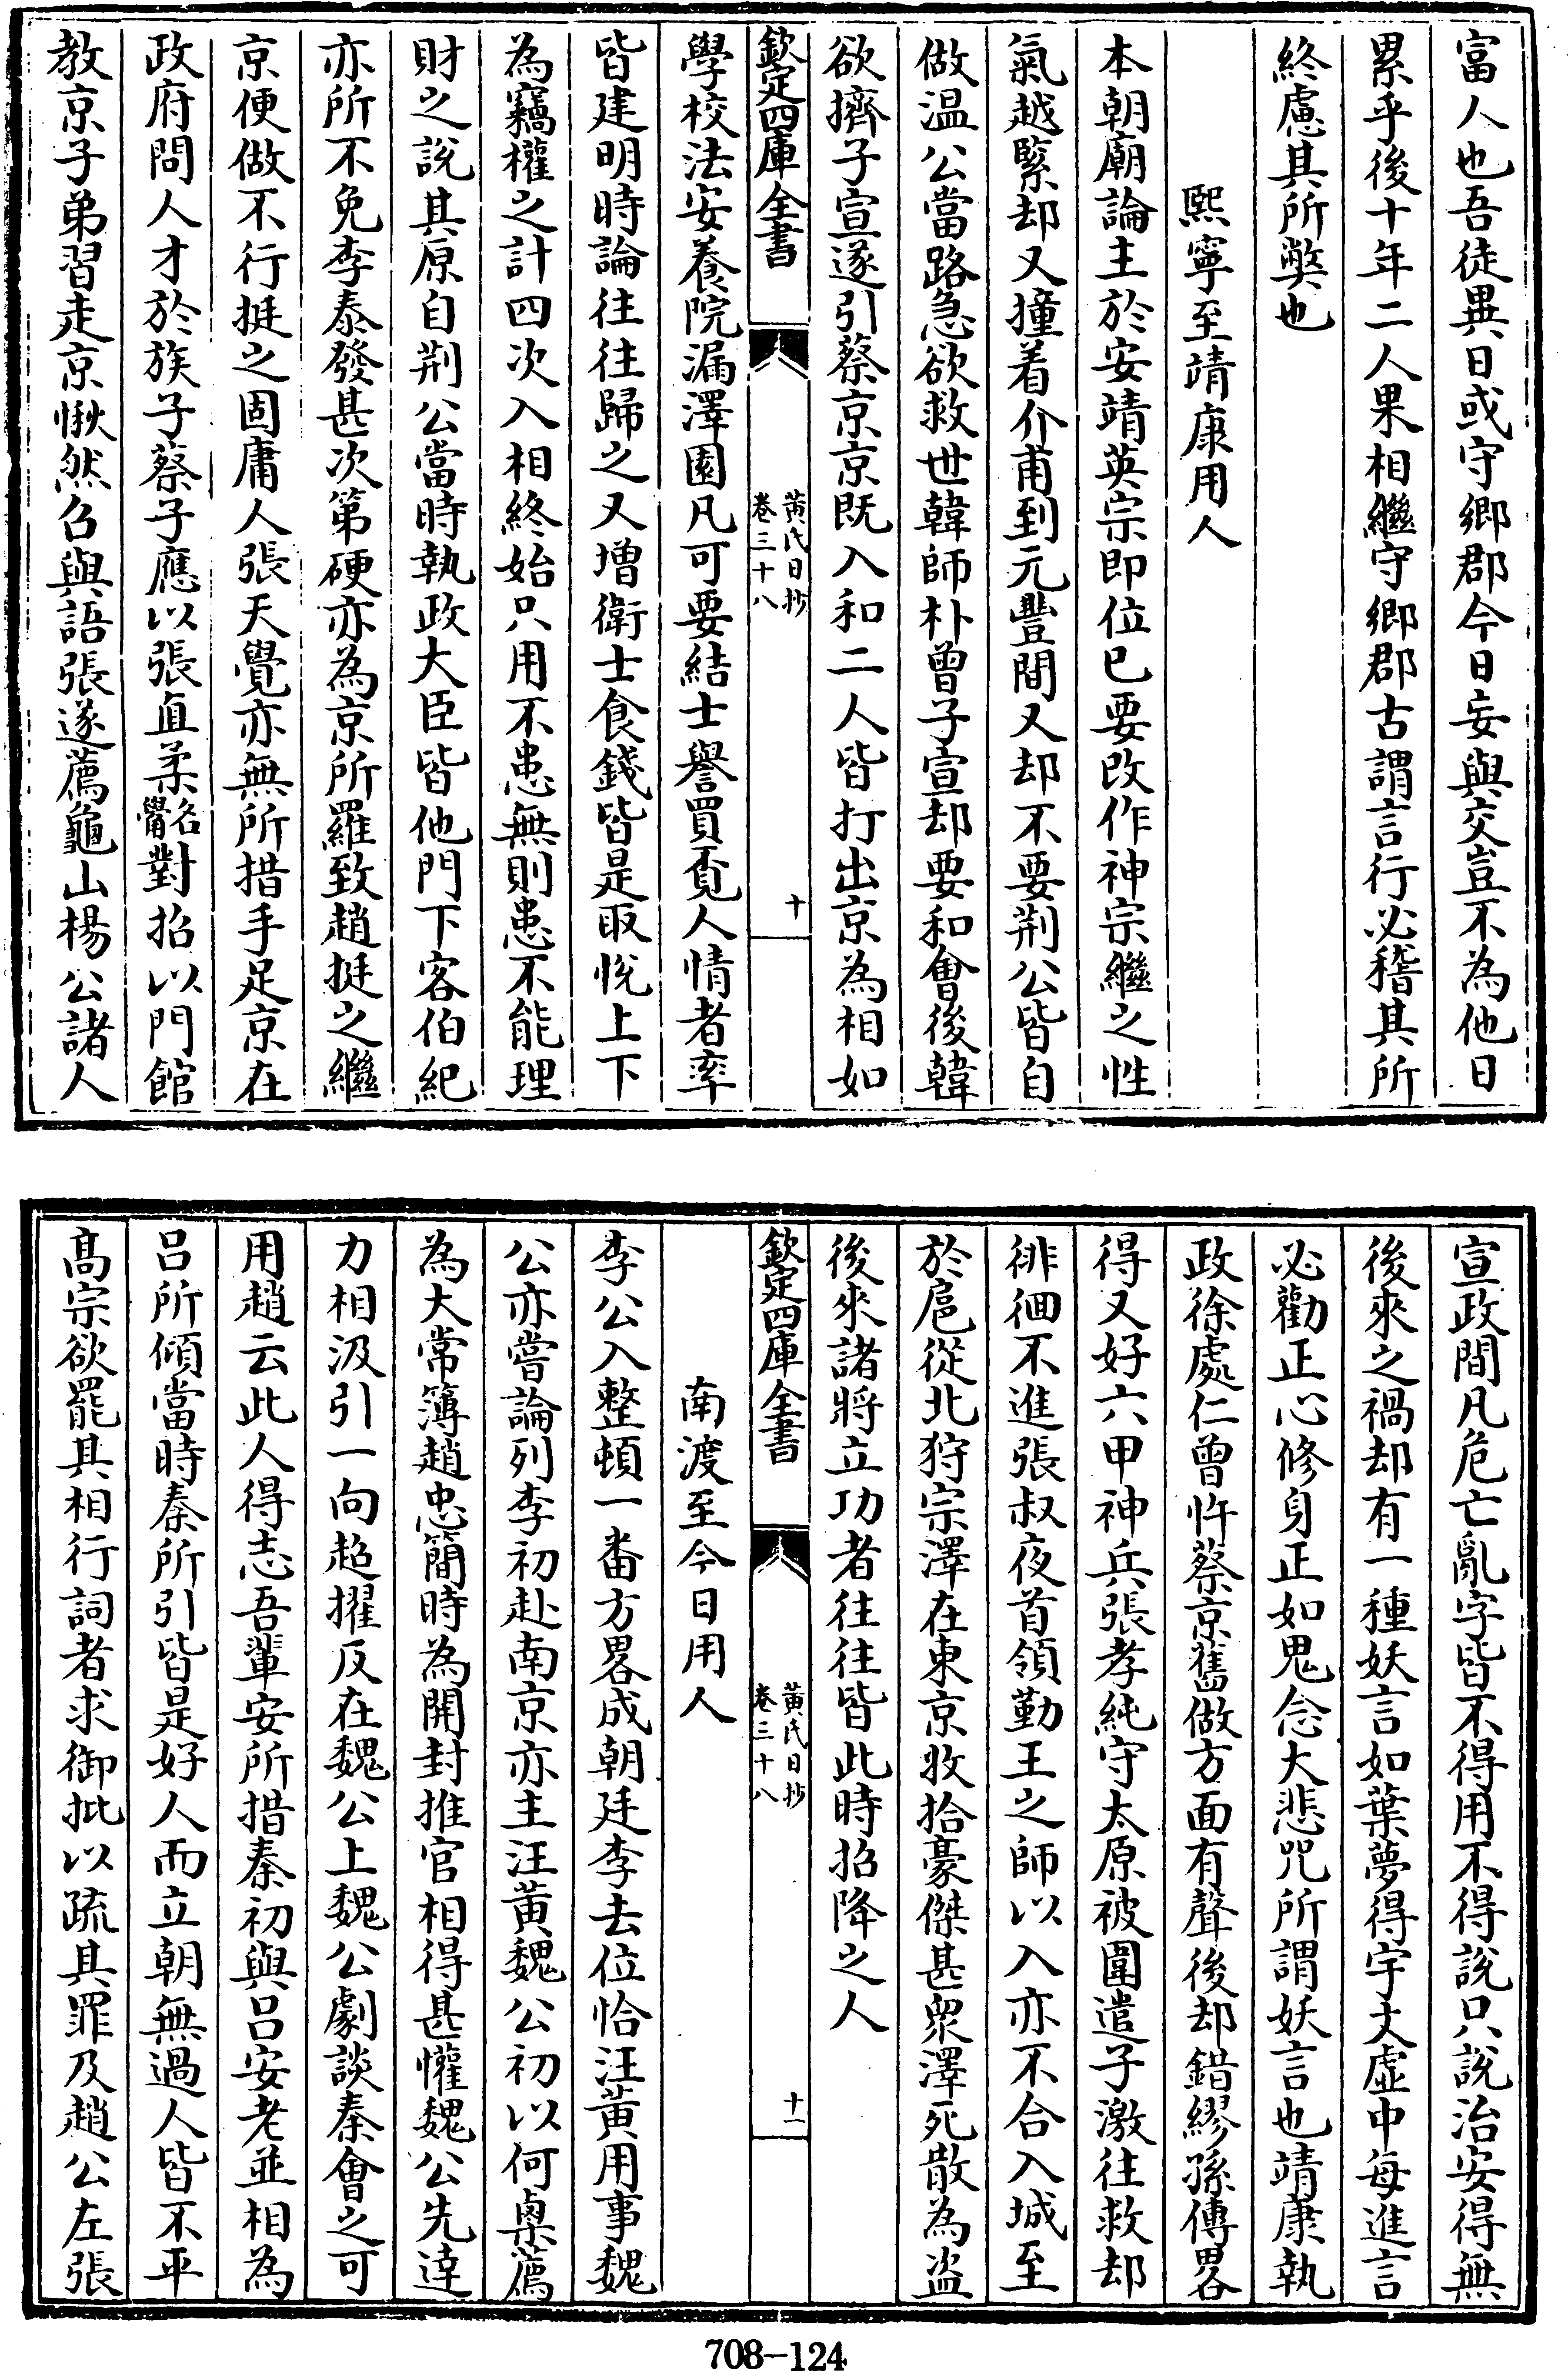 富人也吾徒異日或守鄉郡今日妄與交豈不為他日
累乎後十年二人果相繼守鄉郡古謂言行必稽其所
終慮其所獘也
熙寧至靖康用人
本朝廟論主於安靖英宗即位已要改作神宗繼之性
氣越緊却又撞着介甫到元豐間又却不要荆公皆自
做温公當路急欲救世韓師朴曾子宣却要和會後韓
欲擠子宣遂引蔡京京既入和二人皆打出京為相如
欽定四庫全書
黄氏日抄
卷三十八
十
學校法安養院漏澤園凡可要結士譽買覔人情者率
皆建明時論往往歸之又增衛士食錢皆是取悅上下
為竊權之計四次入相終始只用不患無則患不能理
財之說其原自荆公當時執政大臣皆他門下客伯紀
亦所不免李泰發甚次第硬亦為京所羅致趙挺之繼
京便做不行挺之固庸人張天覺亦無所措手足京在
政府問人才於族子蔡子應以張直柔名觷對招以門館
教京子弟習走京愀然召與語張遂薦龜山楊公諸人
宣政間凡危亡亂字皆不得用不得說只說治安得無
後來之禍却有一種妖言如葉夢得宇文虚中每進言
必勸正心修身正如鬼念大悲咒所謂妖言也靖康執
政徐處仁曾忤蔡京舊做方面有聲後却錯繆孫傅畧
得又好六甲神兵張孝純守太原被圍遣子激往救却
徘徊不進張叔夜首領勤王之師以入亦不合入城至
於扈從北狩宗澤在東京收拾豪傑甚衆澤死散為盗
後來諸將立功者往往皆此時招降之人
欽定四庫全書
黄氏日抄
卷三十八
十一
南渡至今日用人
李公入整頓一番方畧成朝廷李去位恰汪黄用事魏
公亦嘗論列李初赴南京亦主汪黄魏公初以何㮚薦
為大常簿趙忠簡時為開封推官相得甚懽魏公先達
力相汲引一向超擢反在魏公上魏公劇談秦會之可
用趙云此人得志吾輩安所措秦初與吕安老並相為
吕所傾當時秦所引皆是好人而立朝無過人皆不平
髙宗欲罷其相行詞者求御批以疏其罪及趙公左張
708-124